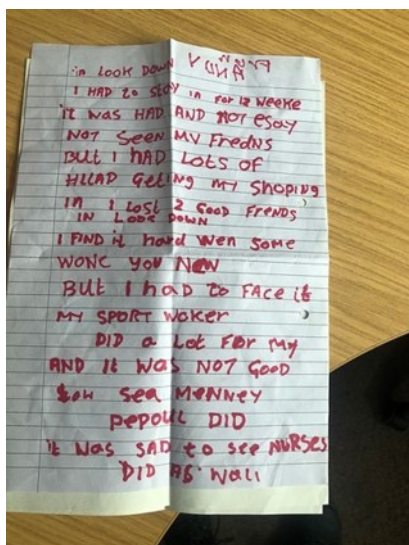 in LOOK DOWN
I HAD to STOY in FOR 12 WEEKE
it WAS HAD AND NOT ESAY
NOT SEEN MY FREDNS
BUt I HAD LOTS OF
HLLAD GETING MY SHOPING
IN I LOST 2 GOOD FRENDS
IN LOOK DOWN
I FIND it hard WEN SOME
WONE YOU NEW
BUT I haD to FACE it
MY SPORT WOKER
DID a Lot FOR MY
AND It WAS NOT GOOD
SEA MENNEY
PEPOUL DID
it WAS SAD to SEE NURSES
DID AS WALL